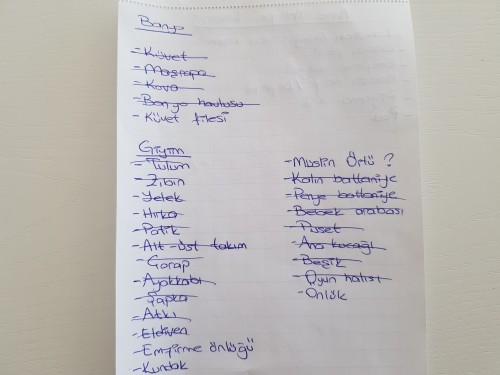 Banyo
- Küvet
- Maşrapa
- Kova
- Banyo havlusu
- Küvet filesi
Giyim
- Tulum
- Zıbın
- Yelek
- Hırka
- Patik
- Alt-üst takım
- Çorap
- Ayakkabı
- Şapka
- Atkı
- Eldiven
- Emzirme önlüğü
- Kundak
- Müslin Örtü ?
- Kalın battaniye
- Penye battaniye
- Bebek arabası
- Puset
- Ana kucağı
- Beşik
- Oyun halısı
- Önlük